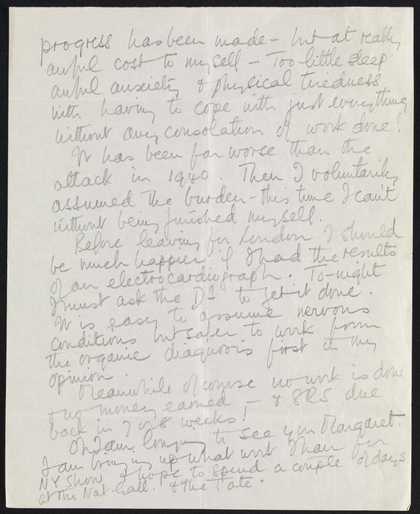 progress has been made – but at really
awful cost to myself – Too little sleep
awful anxiety & physical tiredness
with having to cope with just everything
without any consolation of work done!
It has been far worse than the
attack in 1940. Then I voluntarily
assumed the burden – this time I can't
without being finished myself.
Before leaving for London I should
be much happier if I had the results
of an electrocardiograph. To-night
I must ask the Dr to get it done.
It is easy to assume nervous
conditions but safer to work from
the organic diagnosis first in my
opinion.
Meanwhile of course no work is done
money earned – &
back in 7 or 8 weeks!
Oh I am longing to see you Margaret.
I am bringing up what work I have for
NY show & hope to spend a couple of days
at the Nat. Gall. & the Tate.